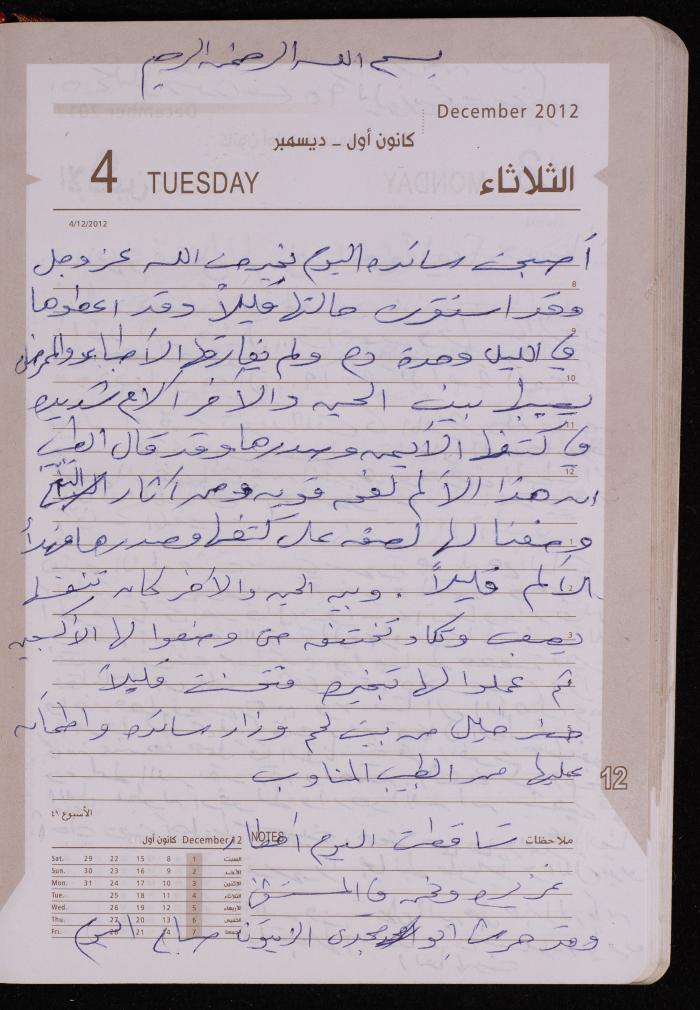 بسم الله الرحمن الرحيم
December 2012
كانون أول - ديسمبر
4 TUESDAY الثلاثاء
4/12/2012
أصبحت سائده اليوم بخير من الله عز وجل
8
وقد استقرت حالتها قليلاً وقد اعطوها
9
في الليل وحدة دم ولم تفارقها الأطباء والممرضين
10
بين الحين والآخر آلام شديده
11
في كتفها الأيمن وصدرها وقد قال الطبيب
12
ان هذا الألم قويه ومن آثار
وضعنا لها لصقه على كتفها وصدرها فهدأ
الألم قليلاً . وبين الحين والآخر كان تنفسها
2
يصعب وتكاد تختنق حتى وضعوا لها الأكسجين
3
ثم عملوا لها تبخيره فتحسنت قليلاً
حضر خليل من بيت لحم وزار سائده واطمأن
5
عليها من الطبيب المناوب
12
الأسبوع ٤٩
ملاحظات NOTES تساقطت اليوم امطار
كانون أول December 12
Sat. 29 22 15 8 1 السبت
Sun. 30 23 16 9 2 الأحد
Mon. 31 24 17 10 3 الاثنين
Tue. 25 18 11 4 الثلاثاء
Wed. 26 19 12 5 الأربعاء
Thu. 27 20 13 6 الخميس
Fri. 28 21 14 7 الجمعة
غزيره ونحن في المستشفى
وقد ابو مجدي الزيتون صباح اليوم